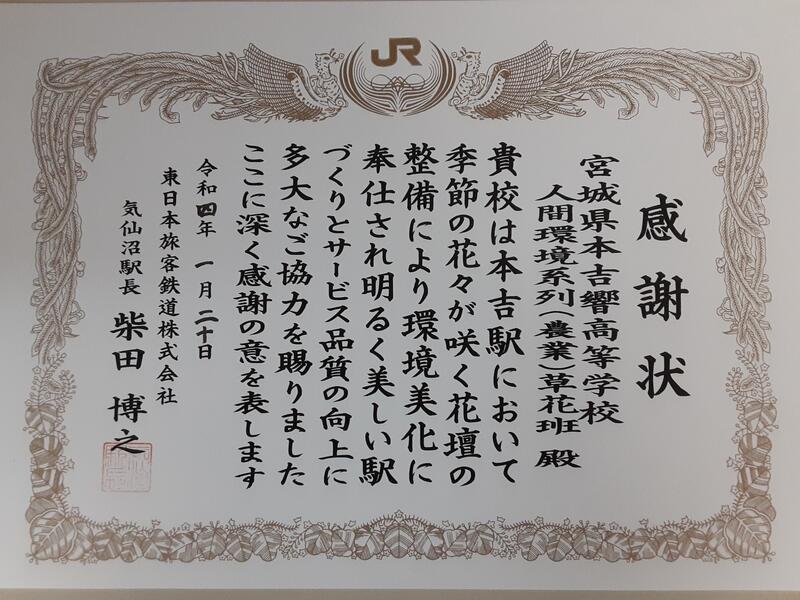 JR
感謝状
宮城県本吉響高等学校
人間環境系列(農業)草花班 殿
貴校は本吉駅において
季節の花々が咲く花壇の
整備により環境美化に
奉仕され明るく美しい駅
づくりとサービス品質の向上に
多大なご協力を賜りました
ここに深く感謝の意を表します
令和四年 一月二十日
東日本旅客鉄道株式会社
気仙沼駅長 柴田博之